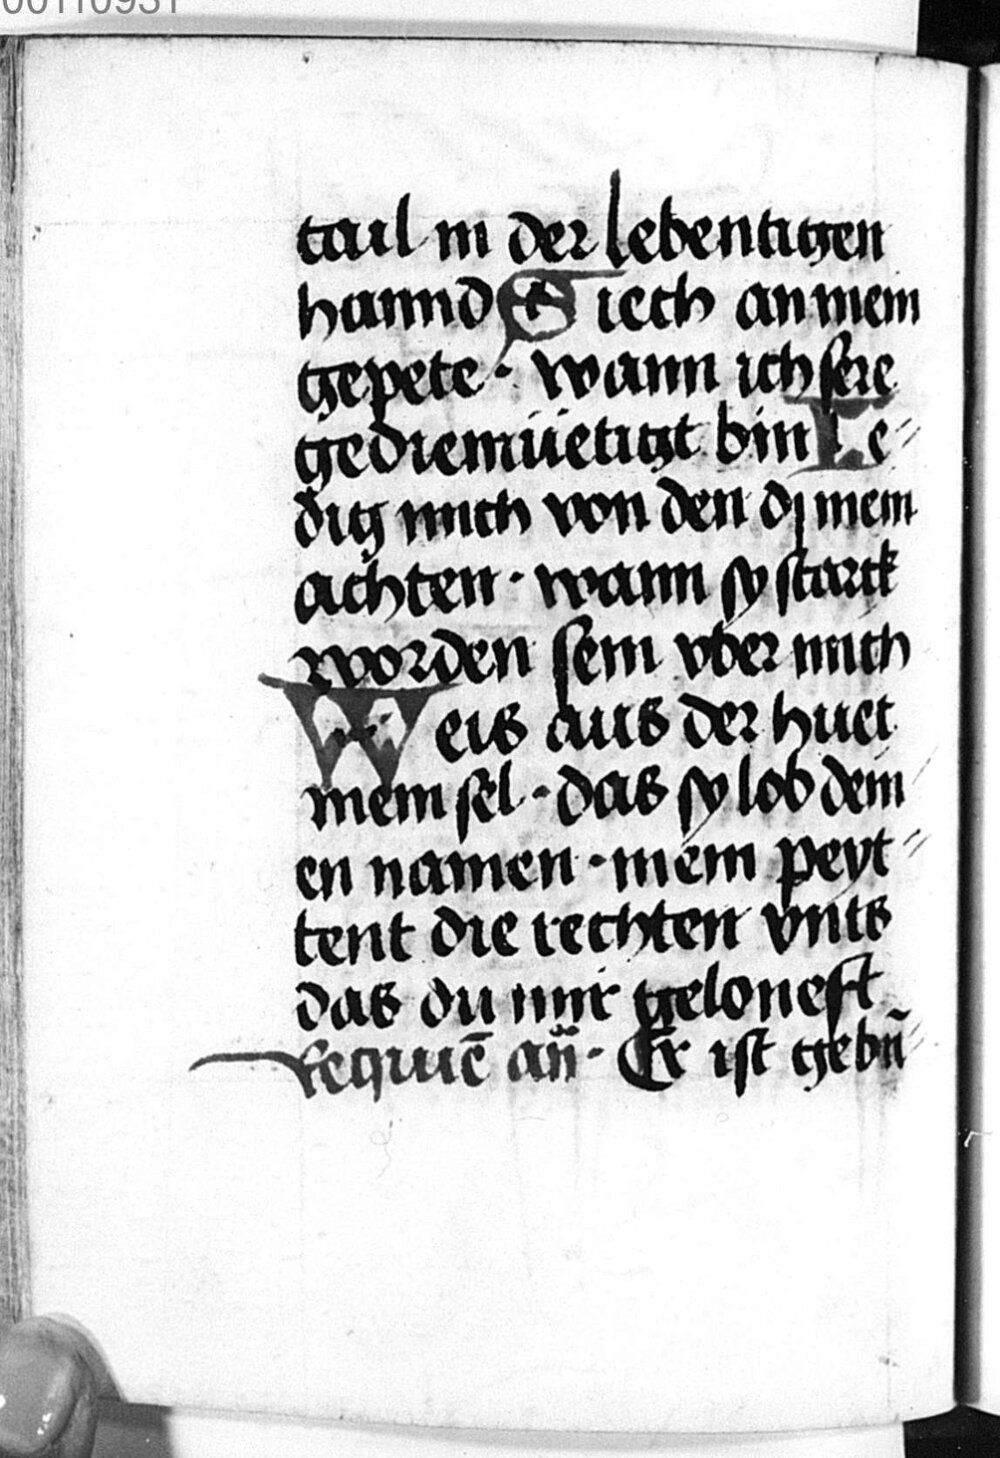 00110931
tail in der lebentigen
hannd Siech an mein
gepete · wann ich sere
gediemüetigt bin Le
dig mich von den dj mein
achten · wann sy starck
worden sein vber mich
Weis aus der huet
mein sel · das sy lob dein
en namen · mein peyt
tent die rechten vnts
das du mir gelonest
Requiē an̄ · Er ist gebn̄